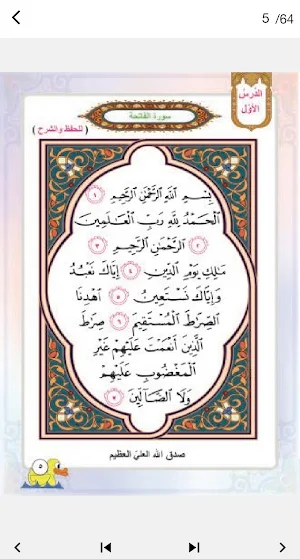 5 /64
الدرس
الأول
سورة الفاتحة
( للحفظ والشرح )
بِسْمِ اللَّهِ الرَّحْمَٰنِ الرَّحِيمِ ١
الْحَمْدُ لِلَّهِ رَبِّ الْعَالَمِينَ
٢ الرَّحْمَٰنِ الرَّحِيمِ ٣
مَالِكِ يَوْمِ الدِّينِ ٤ إِيَّاكَ نَعْبُدُ
وَإِيَّاكَ نَسْتَعِينُ ٥ اهْدِنَا
الصِّرَاطَ الْمُسْتَقِيمَ ٦ صِرَاطَ
الَّذِينَ أَنْعَمْتَ عَلَيْهِمْ غَيْرِ
الْمَغْضُوبِ عَلَيْهِمْ
وَلَا الضَّالِّينَ ٧
صدق الله العلي العظيم